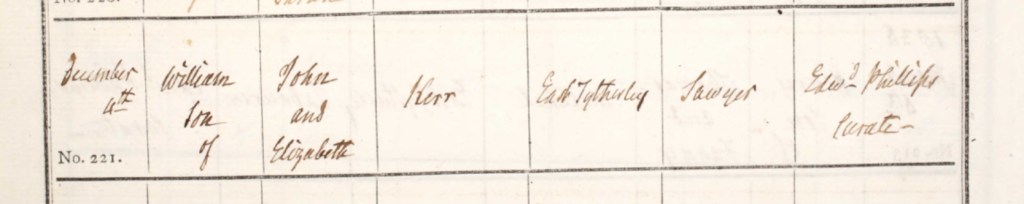 December 4th
William son of
John and Elizabeth
Kerr
East Tytherley
Sawyer
Edwd. Phillips Curate
No. 221.